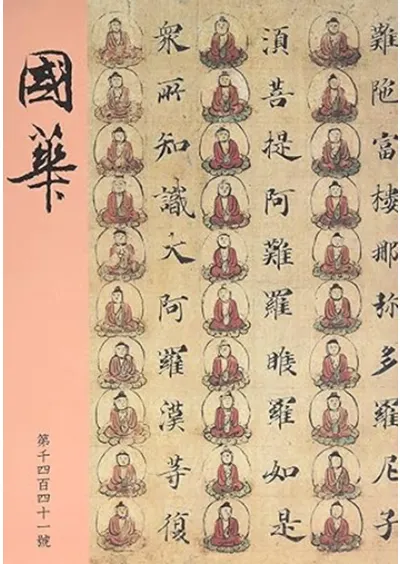 國華
第千四百四十一號
難陁富樓那弥多羅尼子
須菩提阿難羅睺羅如是
衆所知識大阿羅漢等復